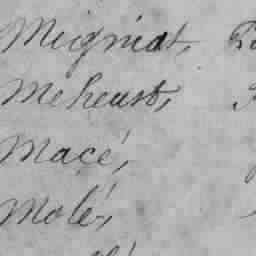 Migniot,
Meheust,
Macé,
Molé,